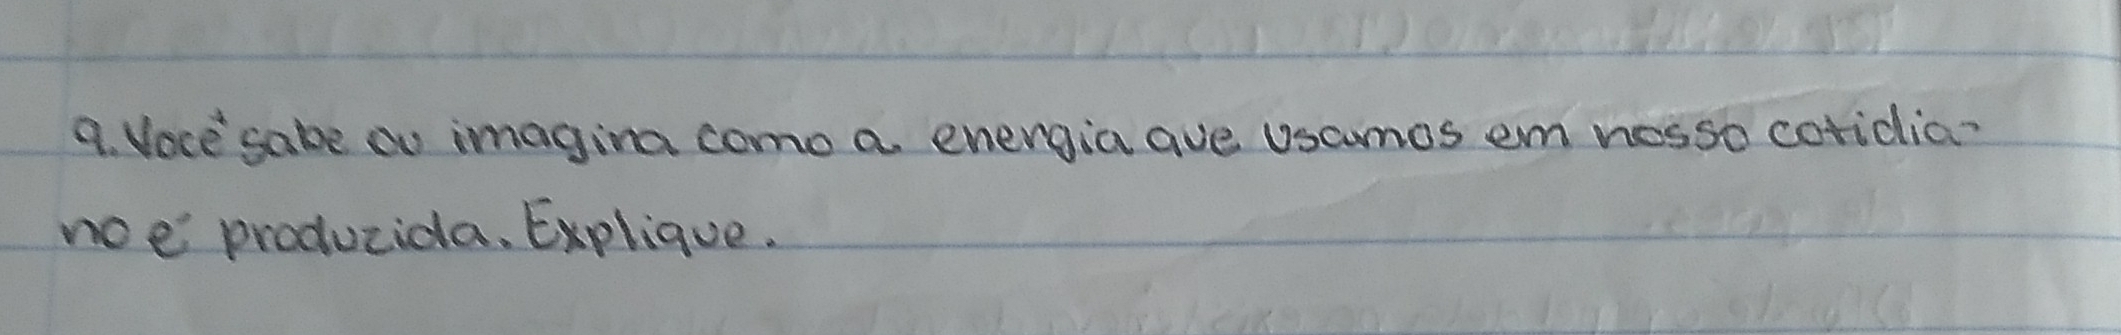 9. Você sabe ou imagina como a energia que usamos em nosso cotidia-
no é produzida. Explique.